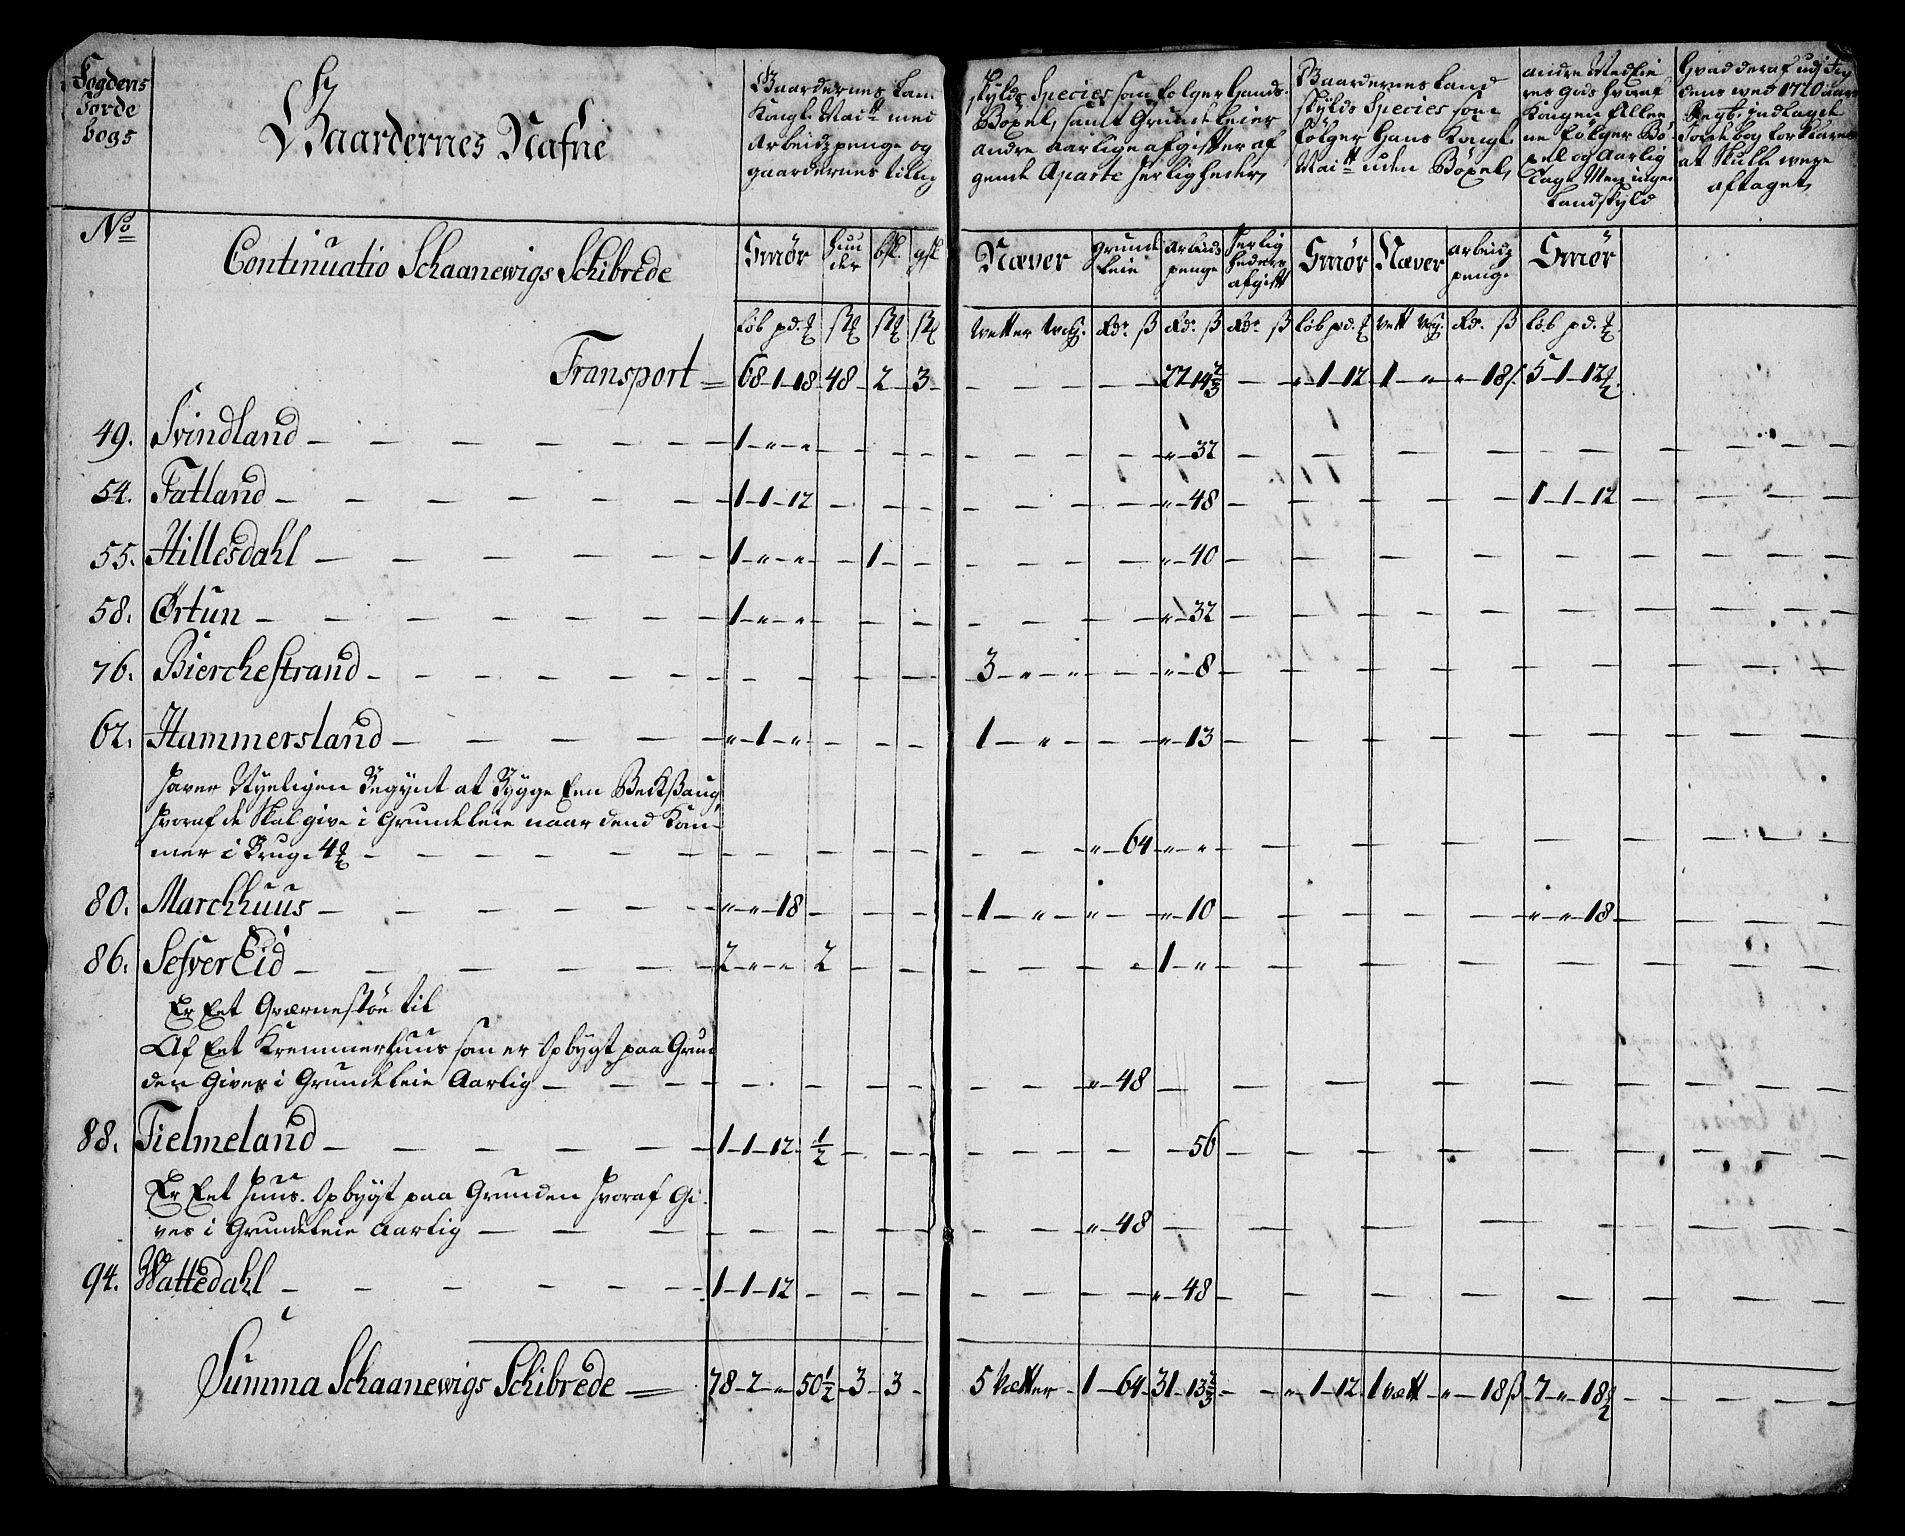 Fogdens
Jorde
bogs
No
Gaardernes Nafne
Gaardernes Lan
Kongl. Mai^tt med
Arbeidzpenge og
gaardernes tillig
skylds Species som følger Hands
Boxel, samt Grundeleier
andre aarlige afgifter af
gende Aparte Herligheder,
Gaardernes Land
skylds Species som
følger Hans Kongl.
Mai^tt uden Böxel,
andre Medeie
res gods hvoraf
Kongen Allee
ne følger Bö
xel og aarlig
Tage Men ingen
Landskyld
Hvad deraf udj
dend wed 1720 aars
Regb. indlagde
Jordebog forklares
at skulle were
aftaget,
Continuatio Schaanewigs Schibrede
Smör | Huu der | bsk. | gsk. | Næver | Grunde leie | Arbeids penge | Herlig heders afgift | Smör | Næver | Arbeidz penge | Smör
Löb pd. ℔ | st. | st. | st. | Vetter Vog. | Rdr. ß | Rdr. ß | Rdr. ß | Löb pd. ℔ | Vett Vog. | Rdr. ß | Löb pd. ℔
Transport = 68-1-18 48- 2- 3- — — — 22 14 2/3 — „-1-12 1-„ „-18ß. 5-1-12℔.
49. Svindland — 1-„-„ — „-32 —
54. Fatland — 1-1-12 — „-48 — 1-1-12 —
55. Hillesdahl — 1-„-„ — 1 — „-40 —
58. Ørtun — 1-„-„ — „-32 —
76. Bierchestrand — 3-„-„ — „-8 —
62. Hammersland — „-1-„ — 1-„ — „-13 —
haver Nyeligen Begynt at Bygge Een Beckßaug
hvoraf de skal give i Grundeleie naar dend kom-
mer i Brug. 4℔ — „-64 „-„ —
80. Marchhuus — „-„-18 — 1-„ „- „-10 — „-„-18 —
86. SefverEid — 2-„-„ 2 — 1-„ —
Er Eet Qværnestöe til
Af Eet Kremmerhuus som er Opbygt paa Grun
den Gives i Grundeleie Aarlig — „-48 —
88. Tielmeland — 1-1-12 1/2 — 56 —
Er Eet Huus Opbygt paa Grunden hvoraf Gi
ves i Grundeleie Aarlig — „-48 —
94. Wattedahl — 1-1-12 — „-48 —
Summa Schaanewigs Schibrede = 78-2-„ 50 1/2 -3- 3- 5 Vetter 1-64 31-13 2/3 — „-1-12 1 vett „-18ß 7-„-18℔ —